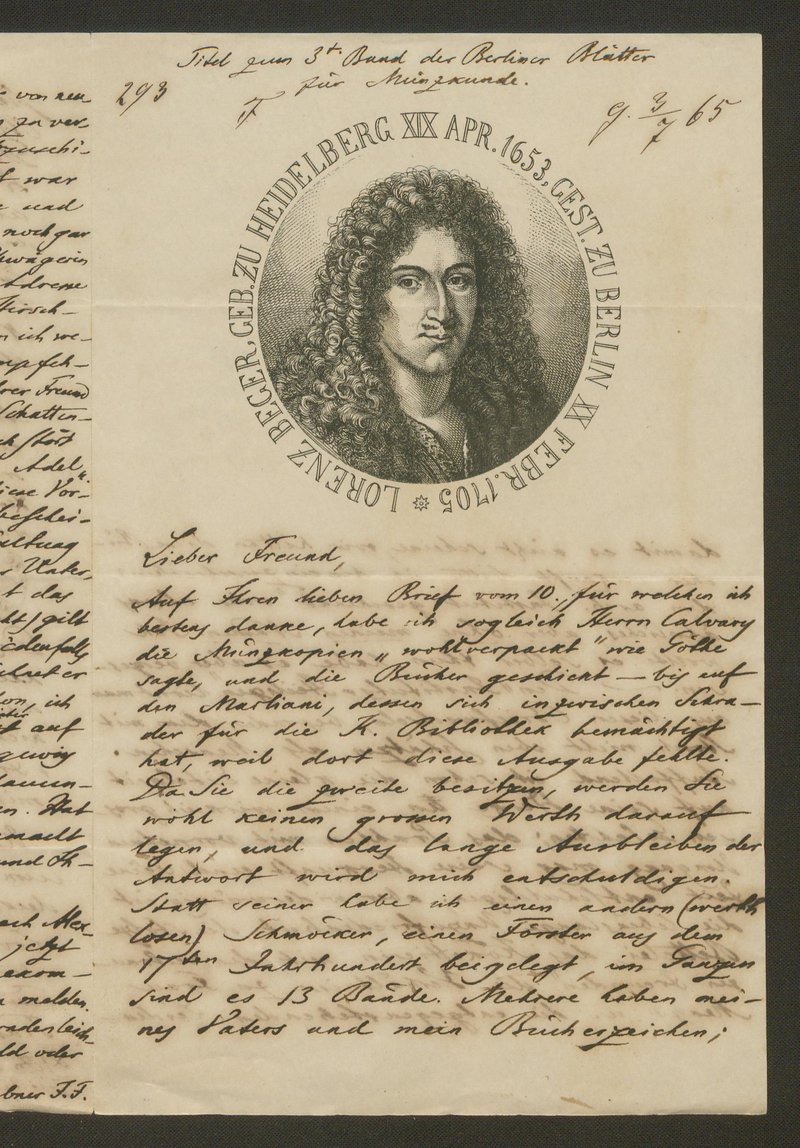 Titel zum 3t. Band der Berliner Blätter
für Münzkunde.
293
F
g. 3/7 65
LORENZ BEGER, GEB. ZU HEIDELBERG XIX APR. 1653, GEST. ZU BERLIN XX FEBR. 1705
Lieber Freund,
Auf Ihren lieben Brief vom 10., für welchen ich
bestens danke, habe ich sogleich Herrn Calvary
die Münzkopien „wohlverpackt" wie Göthe
sagte, und die Bücher geschickt — bis auf
den Marliani, dessen sich inzwischen Schra-
der für die K. Bibliothek bemächtigt
hat, weil dort diese Ausgabe fehlte.
Da Sie die zweite besitzen, werden Sie
wohl keinen grossen Werth darauf
legen, und das lange Ausbleiben der
Antwort wird mich entschuldigen.
Statt seiner habe ich einen andern (werth
losen) Schmöcker, einen Förster aus dem
17ten Jahrhundert beigelegt, im Ganzen
sind es 13 Bände. Mehrere haben mei-
nes Vaters und mein Bücherzeichen;
von neu
zu ver-
war
und
noch gar
Adresse
Hirsch-
ich we-
Freund
Schatten-
Adel
Vor-
Unter-
das
gilt
ich
auf
Hat
und Th-
nach Alex-
jetzt
melden
oder
J. F.